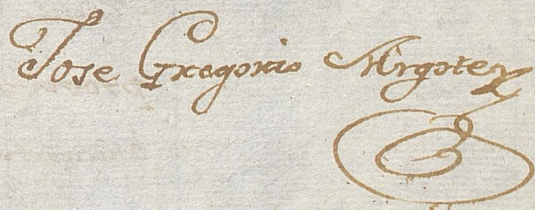 Jose Gregorio Argotey